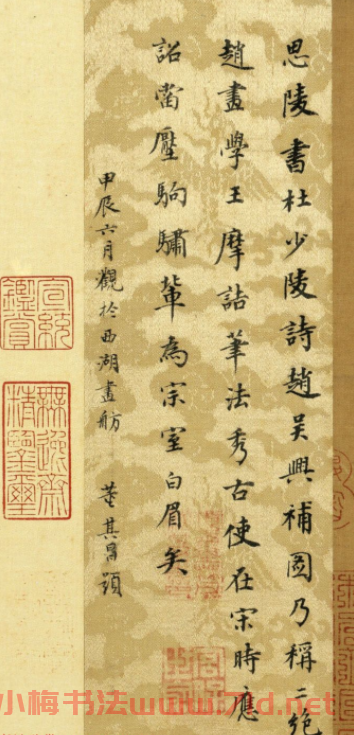 思陵書杜少陵詩趙吳興補圖乃稱二絕
趙畫學王摩詰筆法秀古使在宋時應
詔當壓駒驌輩為宗室白眉矣
甲辰六月觀於西湖畫舫 董其昌題
宣統鑑賞
無逸齋精鑑璽
小梅书法